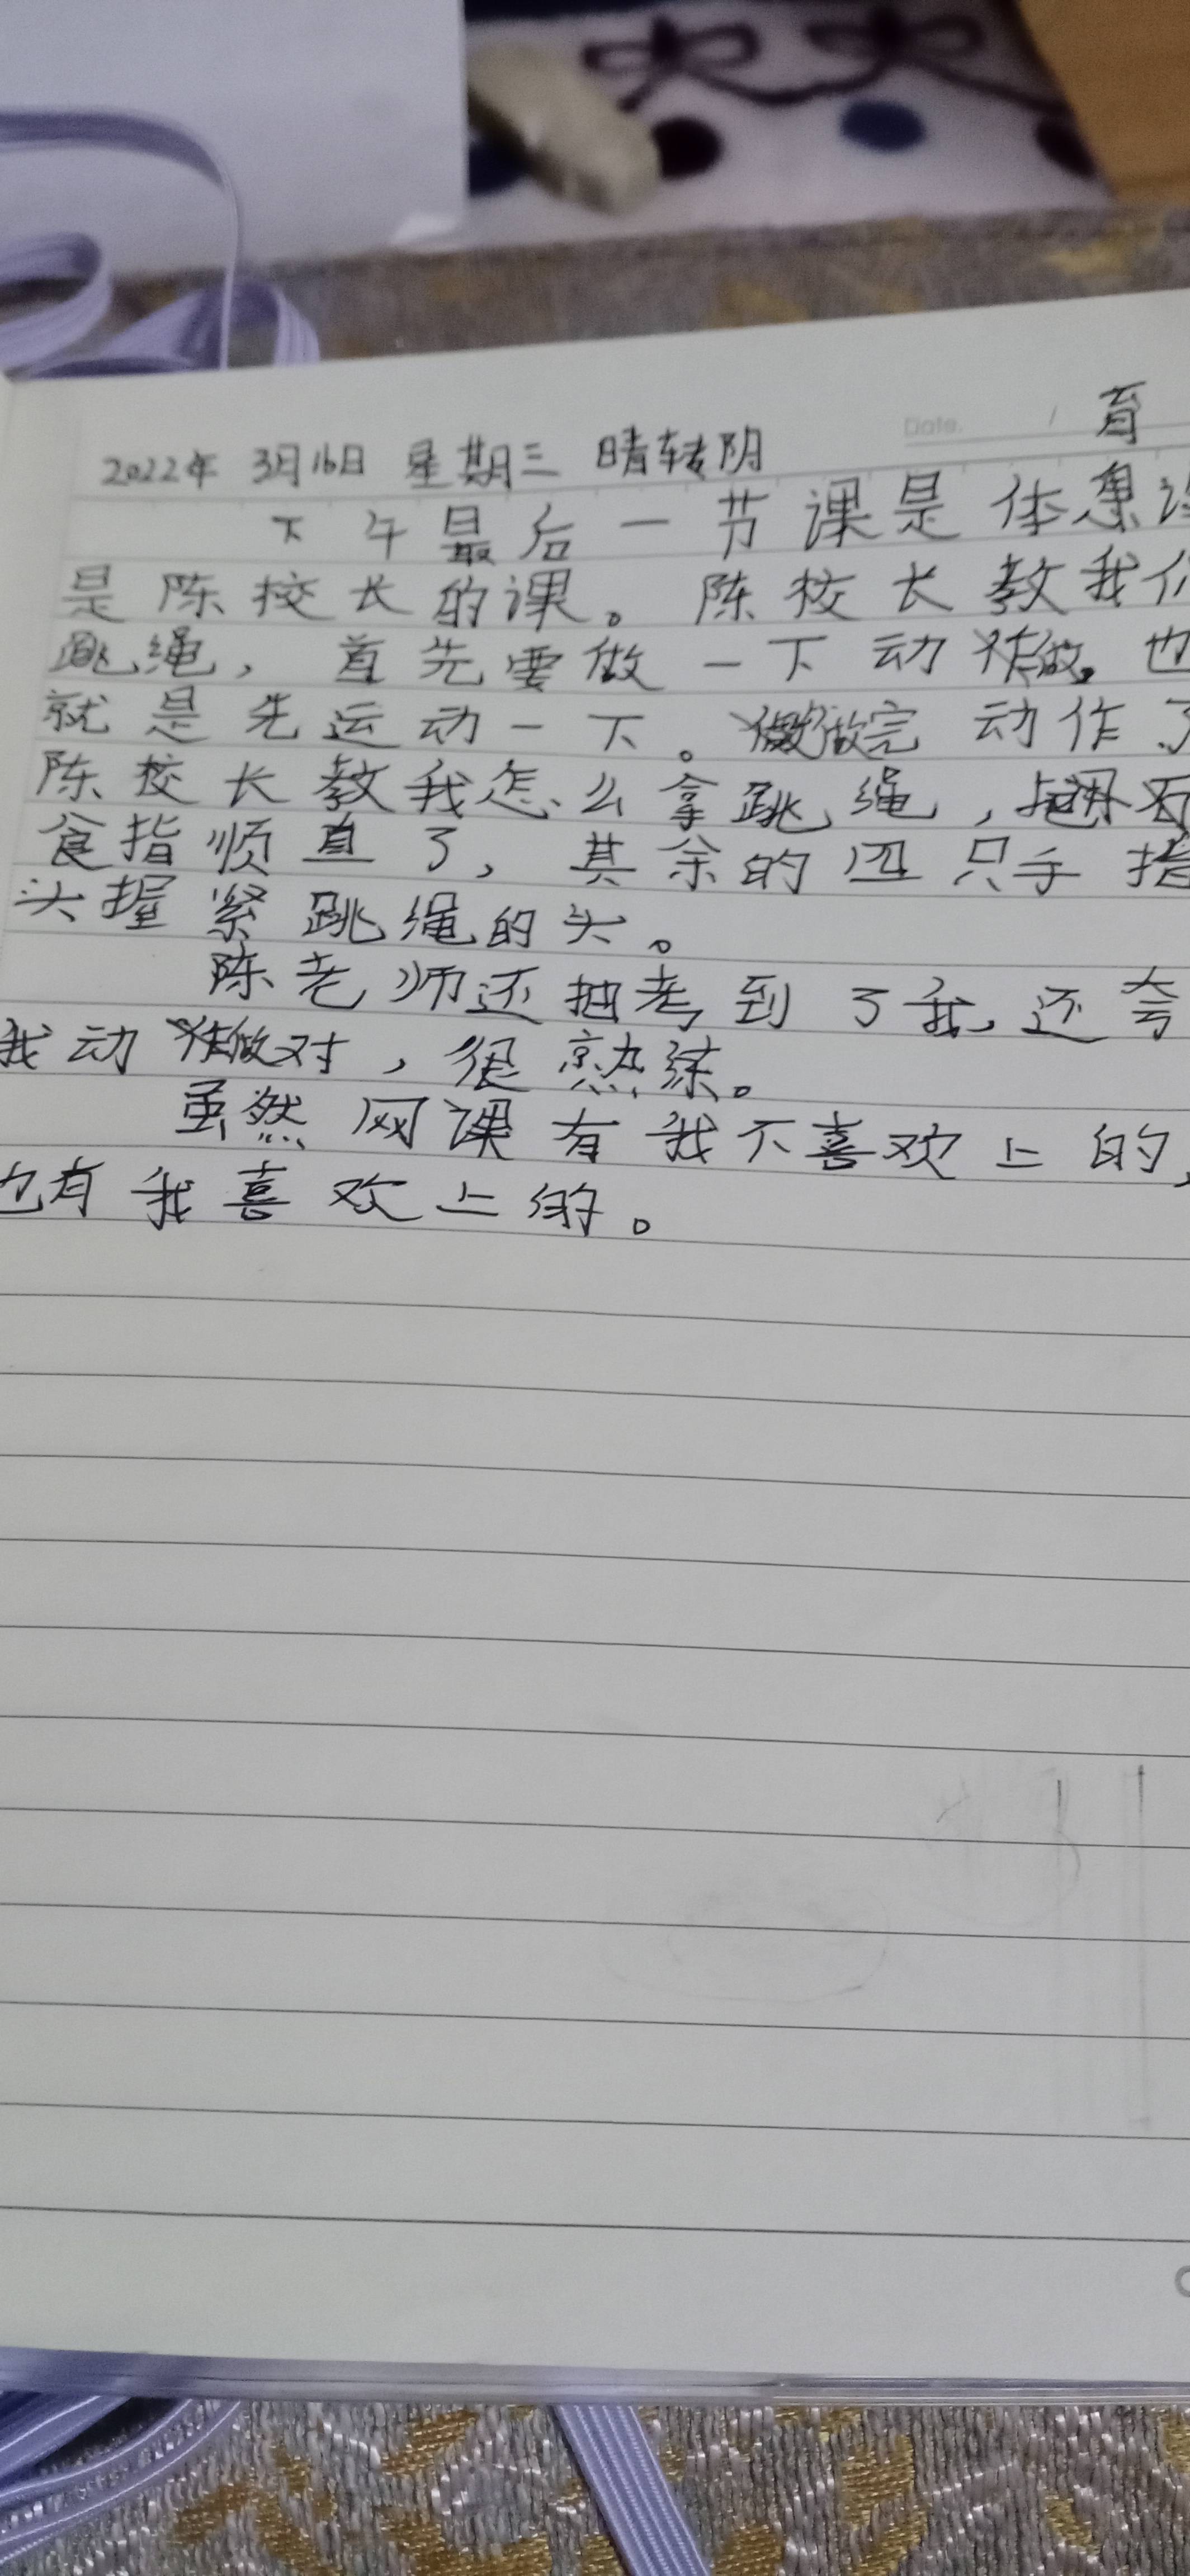 Date.
育
2022年 3月16日 星期三 晴转阴
下午最后一节课是体课
是陈校长的课。陈校长教我们
跳绳，首先要做一下动做。也
就是先运动一下。做完动作了
陈校长教我怎么拿跳绳，
食指顺直了，其余的四只手指
头握紧跳绳的头。
陈老师还抽考到了我，还夸
我动做对，很熟练。
虽然网课有我不喜欢上的，
也有我喜欢上的。